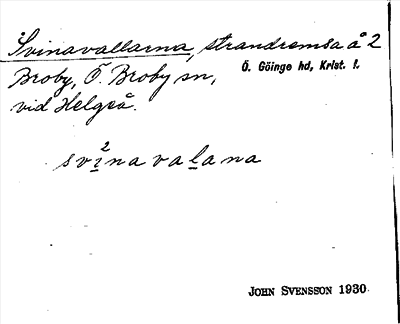 Svinavallarna, strandremsa å 2
Broby, Ö. Broby sn, Ö. Göinge hd, Krist. l.
vid Helgeå.
svi²navaḷana
JOHN SVENSSON 1930.